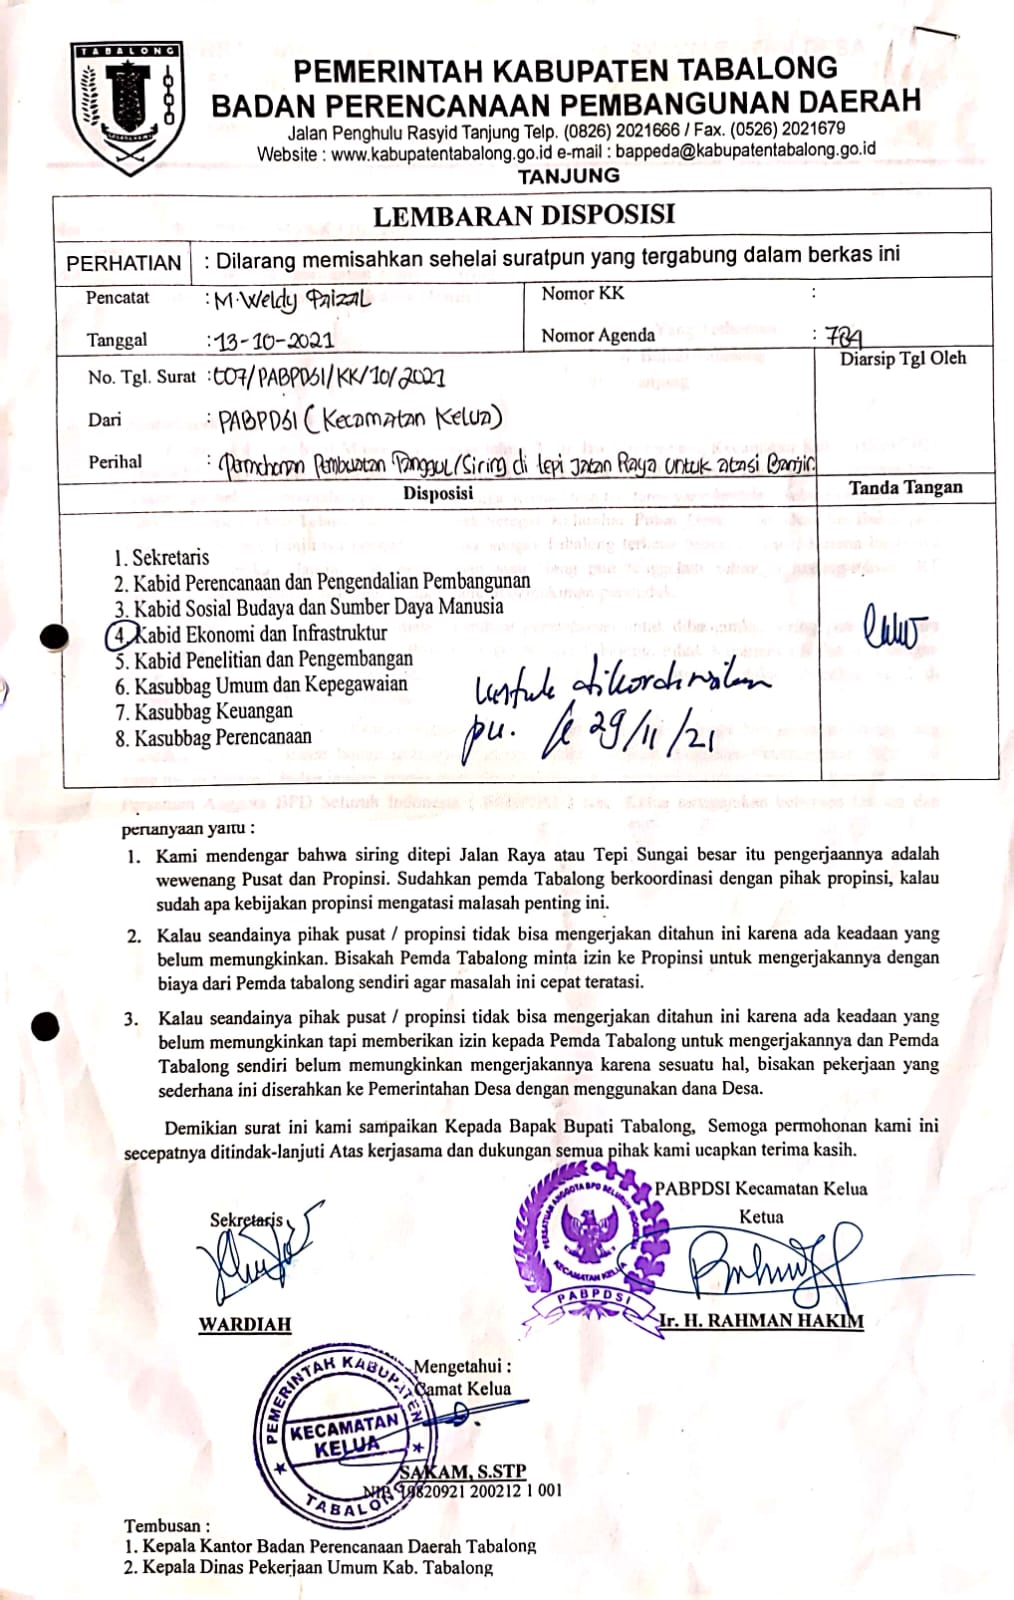 TABALONG
PEMERINTAH KABUPATEN TABALONG
BADAN PERENCANAAN PEMBANGUNAN DAERAH
Jalan Penghulu Rasyid Tanjung Telp. (0826) 2021666 / Fax. (0526) 2021679
Website : www.kabupatentabalong.go.id e-mail : bappeda@kabupatentabalong.go.id
TANJUNG
LEMBARAN DISPOSISI
PERHATIAN : Dilarang memisahkan sehelai suratpun yang tergabung dalam berkas ini
Pencatat : M. Weldy Faizal
Nomor KK :
Tanggal : 13-10-2021
Nomor Agenda : 784
Diarsip Tgl Oleh
No. Tgl. Surat : 007/PABPDSI/KK/10/2021
Dari : PABPDSI (Kecamatan Kelua)
Perihal : Permohonan Pembuatan Tanggul/Siring di tepi Jalan Raya untuk atasi Banjir.
Disposisi
Tanda Tangan
1. Sekretaris
2. Kabid Perencanaan dan Pengendalian Pembangunan
3. Kabid Sosial Budaya dan Sumber Daya Manusia
4. Kabid Ekonomi dan Infrastruktur
5. Kabid Penelitian dan Pengembangan
6. Kasubbag Umum dan Kepegawaian
7. Kasubbag Keuangan
8. Kasubbag Perencanaan
untuk dikordinasikan
pu. 29/11/21
Persatuan Anggota BPD Seluruh Indonesia
pertanyaan yaitu :
1. Kami mendengar bahwa siring ditepi Jalan Raya atau Tepi Sungai besar itu pengerjaannya adalah
wewenang Pusat dan Propinsi. Sudahkan pemda Tabalong berkoordinasi dengan pihak propinsi, kalau
sudah apa kebijakan propinsi mengatasi malasah penting ini.
2. Kalau seandainya pihak pusat / propinsi tidak bisa mengerjakan ditahun ini karena ada keadaan yang
belum memungkinkan. Bisakah Pemda Tabalong minta izin ke Propinsi untuk mengerjakannya dengan
biaya dari Pemda tabalong sendiri agar masalah ini cepat teratasi.
3. Kalau seandainya pihak pusat / propinsi tidak bisa mengerjakan ditahun ini karena ada keadaan yang
belum memungkinkan tapi memberikan izin kepada Pemda Tabalong untuk mengerjakannya dan Pemda
Tabalong sendiri belum memungkinkan mengerjakannya karena sesuatu hal, bisakan pekerjaan yang
sederhana ini diserahkan ke Pemerintahan Desa dengan menggunakan dana Desa.
Demikian surat ini kami sampaikan Kepada Bapak Bupati Tabalong, Semoga permohonan kami ini
secepatnya ditindak-lanjuti Atas kerjasama dan dukungan semua pihak kami ucapkan terima kasih.
PABPDSI Kecamatan Kelua
Sekretaris
Ketua
PERSATUAN ANGGOTA BPD SELURUH INDONESIA
KECAMATAN KELUA
PABPDSI
WARDIAH
Ir. H. RAHMAN HAKIM
Mengetahui :
Camat Kelua
PEMERINTAH KABUPATEN
KECAMATAN
KELUA
TABALONG
SAKAM, S.STP
NIP. 19820921 200212 1 001
Tembusan :
1. Kepala Kantor Badan Perencanaan Daerah Tabalong
2. Kepala Dinas Pekerjaan Umum Kab. Tabalong